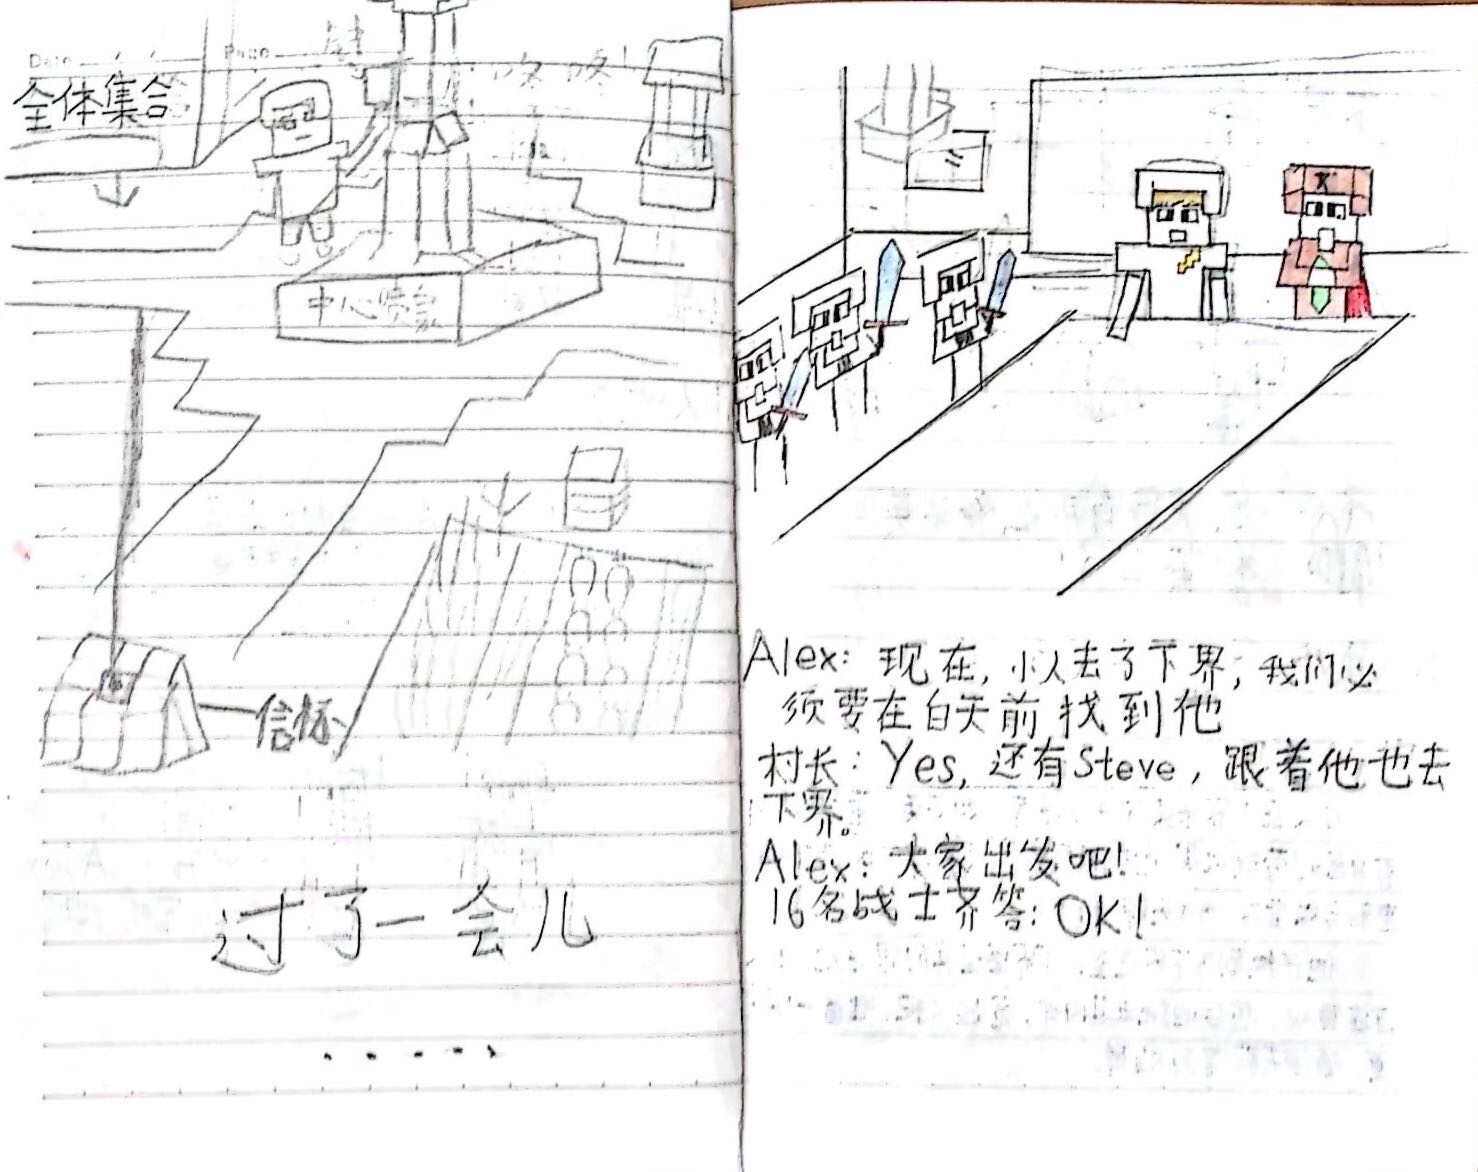 Date Page
咚咚!
全体集合
中心喷泉
信标
过了一会儿
.....
Alex: 现在,小人去了下界,我们必
须要在白天前找到他
村长: Yes, 还有Steve,跟着他也去
下界。
Alex: 大家出发吧!
16名战士齐答: OK!